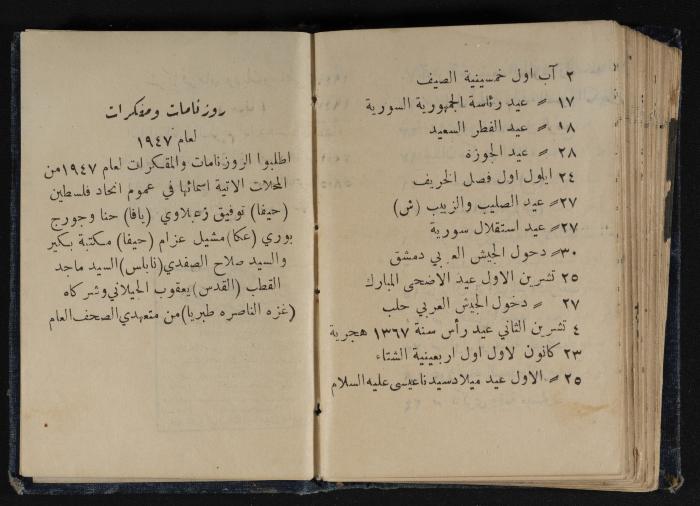 ٢ آب اول خمسينية الصيف
١٧ = عيد رئاسة الجمهورية السورية
١٨ = عيد الفطر السعيد
٢٨ = عيد الجوزه
٢٤ ايلول اول فصل الخريف
٢٧ = عيد الصليب والزبيب (ش)
٢٧ = عيد استقلال سورية
٣٠ = دخول الجيش العربي دمشق
٢٥ تشرين الاول عيد الاضحى المبارك
٢٧ = دخول الجيش العربي حلب
٤ تشرين الثاني عيد رأس سنة ١٣٦٧ هجرية
٢٣ كانون لاول اول اربعينية الشتاء
٢٥ = الاول عيد ميلاد سيدنا عيسى عليه السلام
روزنامات ومفكرات
لعام ١٩٤٧
اطلبوا الروزنامات والمفكرات لعام ١٩٤٧ من
المحلات الاتية اسمائها في عموم انحاد فلسطين
(حيفا) توفيق زعبلاوي (يافا) حنا وجورج
بوري (عكا) مشيل عزام (حيفا) مكتبة بكير
والسيد صلاح الصفدي (نابلس) السيد ماجد
القطب (القدس) يعقوب الجيلاني وشركاه
(غزه الناصره طبريا) من متعهدي الصحف العام